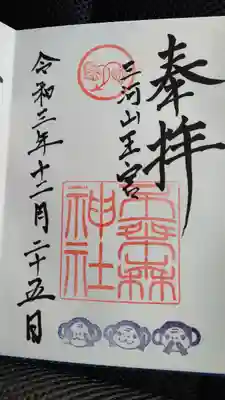 奉拝
三河山王宮
五番森
神社
令和三年十二月二十五日